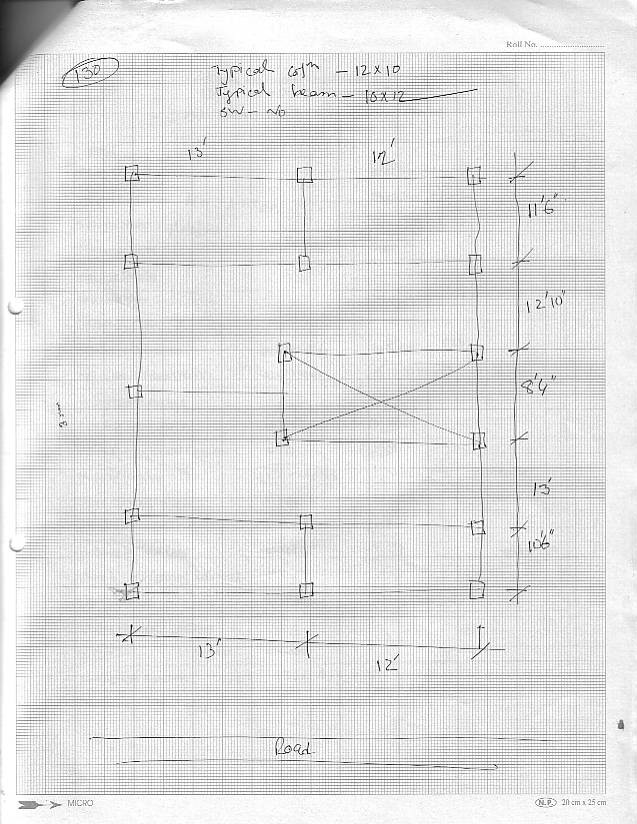 Roll No. ....................
130
Typical colm - 12 x 10
Typical beam - 10 x 12
SW - No
13' 12'
11'6"
12'10"
8'4"
3
13'
10'6"
13' 12'
Road
MICRO N.P. 20 cm x 25 cm